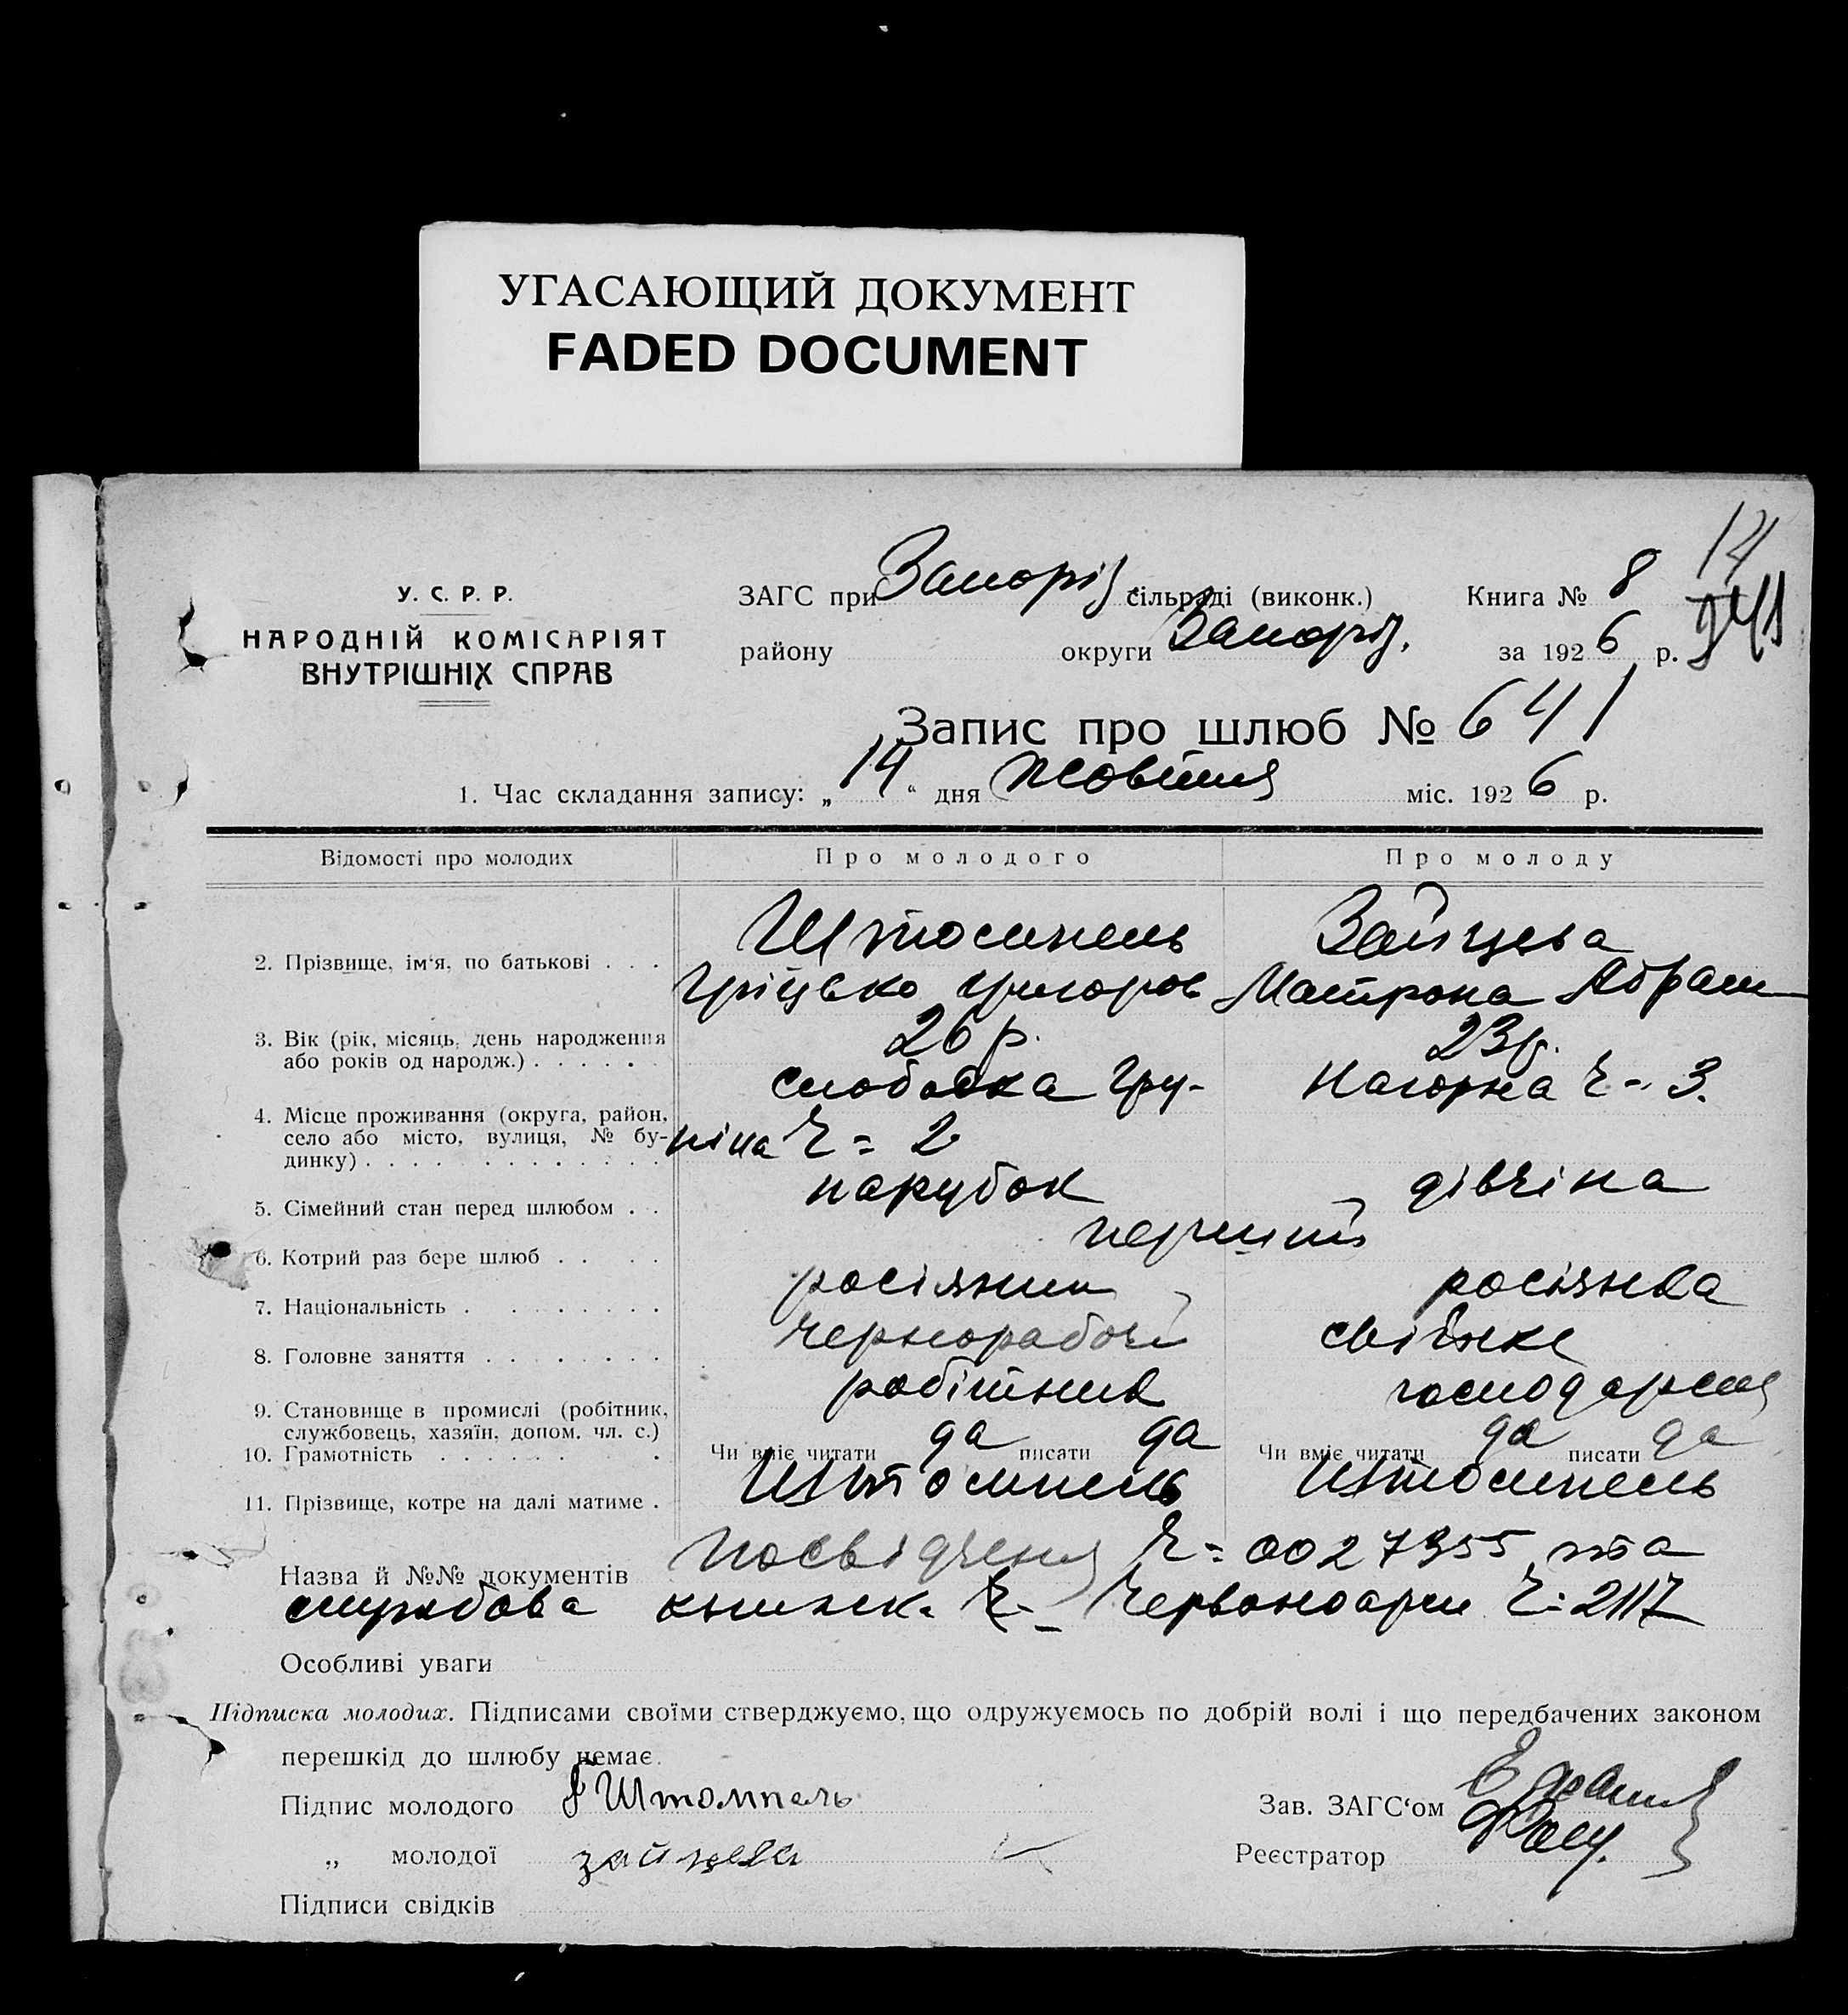 УГАСАЮЩИЙ ДОКУМЕНТ
FADED DOCUMENT
14
У. С. Р. Р.
НАРОДНІЙ КОМІСАРІЯТ
ВНУТРІШНІХ СПРАВ
ЗАГС при Запоріз сільраді (виконк.) Книга № 8
району округи Запоріз. за 1926 р.
Запис про шлюб № 641
1. Час складання запису: „14“ дня Жовтня міс. 1926 р.
Відомості про молодих Про молодого Про молоду
Штомпель Зайцева
2. Прізвище, ім‘я, по батькові . . .
Гріцько Григоров Мотрона Абрам
3. Вік (рік, місяць, день народження 26 р. 23 р.
або років од народж.) . . . . . .
слободка Гру- Нагорна Ч= 3.
4. Місце проживання (округа, район,
село або місто, вулиця, № бу- ніна Ч= 2
динку) . . . . . . . . . . . . .
5. Сімейний стан перед шлюбом . . парубок дівчіна
6. Котрий раз бере шлюб . . . . перший
7. Національність . . . . . . . . росіянин росіянка
8. Головне заняття . . . . . . . чорнорабочі
9. Становище в промислі (робітник, робітник господарства
службовець, хазяїн, допом. чл. с.)
10. Грамотність . . . . . . . Чи вміє читати да писати да Чи вміє читати да писати да
11. Прізвище, котре на далі матиме . Штомпель Штомпель
Назва й №№ документів посвідченя Ч= 0027355 та
службова книжк. Ч- Червоноарм Ч: 2117
Особливі уваги
Підписка молодих. Підписами своїми стверджуємо, що одружуємось по добрій волі і що передбачених законом
перешкід до шлюбу немає.
Підпис молодого Штомпель Зав. ЗАГС‘ом
„ молодої зайцева Реєстратор
Підписи свідків